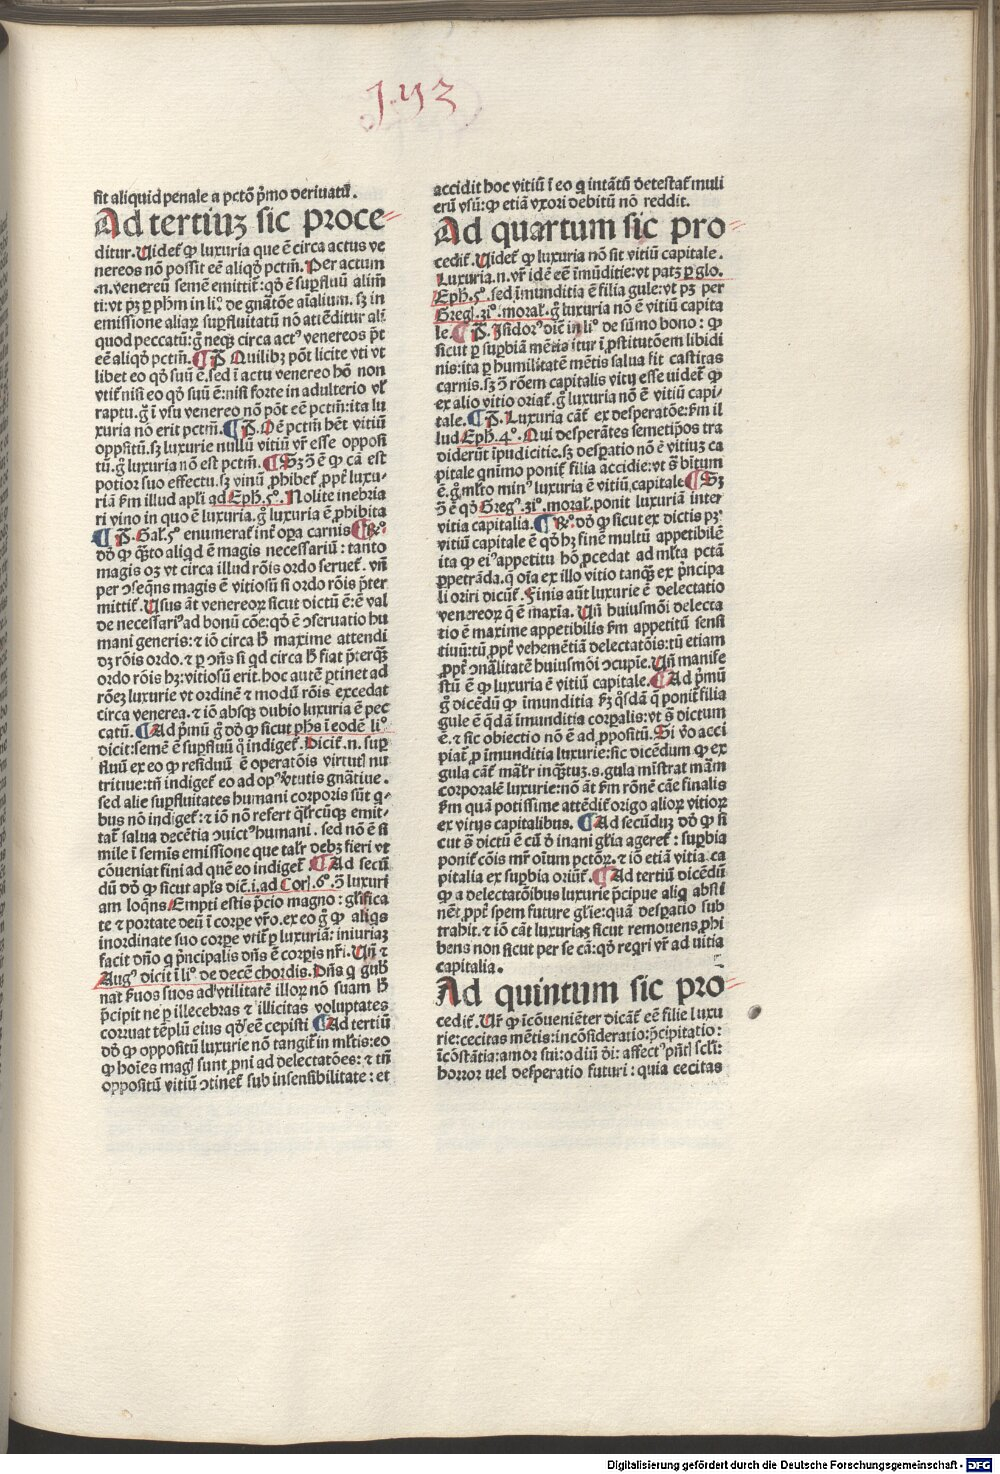 1·43
sit aliquid penale a pctō p̄mo deriuatū.
Ad tertiuꝫ sic proce
ditur. Uidet̄ ꝙ luxuria que ē circa actus ve
nereos nō possit eē aliqđ pctm̄. Per actum
.n. venereū semē emittit̄: qđ ē suꝑfluū alim̄
ti: vt pꝫ ꝑ pħm in li.º de gnātōe aīalium. sꝫ in
emissione aliaꝝ suꝑfluitatū nō attēditur alī
quod peccatū: ḡ neqꝫ circa actꝰ venereos p̄t
eē aliqđ pctm̄. ¶ P̄. Quilibꝫ pōt licite vti vt
libet eo qđ suū ē. sed ī actu venereo hō non
vtit̄ nisi eo qđ suū ē: nisi forte in adulterio vł
raptu. ḡ ī vsu venereo nō pōt eē pctm̄: ita lu
xuria nō erit pctm̄. ¶ P̄. Oē pctm̄ hēt vitiū
oppositū. sꝫ luxurie nullū vitiū vr̄ esse opposi
tū. ḡ luxuria nō est pctm̄. ¶ Sꝫ ꝯ ē ꝙ cā est
potior suo effectu. sꝫ vinū ꝓhibet̄ ꝓpt̄ luxu-
riā ẜm illud apłi ad Ephꝭ. 5º. Nolite inebria
ri vino in quo ē luxuria. ḡ luxuria ē ꝓhibita
¶ P̄. Gał. 5º enumerat̄ int̄ oꝑa carnis ¶ Rº.
dđ ꝙ q̄to aliqd ē magis necessariū: tanto
magis oꝫ vt circa illud rōis ordo seruet̄. vn̄
per ꝯseq̄ns magis ē vitiosū si ordo rōis p̄ter
mittit̄. Usus āt venereoꝝ sicut dictū ē: ē val
de necessariꝰ ad bonū cōe: qđ ē ꝯseruatio hu
mani generis: ⁊ iō circa ħ maxime attendi
dꝫ rōis ordo. ⁊ ꝑ ꝯn̄s si qd circa ħ fiat p̄terq̄ꝫ
ordo rōis hꝫ: vitiosū erit. hoc autē ꝑtinet ad
rōeꝫ luxurie vt ordinē ⁊ modū rōis excedat
circa venerea. ⁊ iō absqꝫ dubio luxuria ē pec
catū. ¶ Ad p̄mū ḡ dđ ꝙ sicut pħs ī eodē li.º
dicit: semē ē suꝑfluū q̊ indiget̄. Dicit̄. n. suꝑ
fluū ex eo ꝙ residuū ē operatōis virtutꝭ nu
tritiue: tn̄ indiget̄ eo ad opꝰ v̓tutis gnātiue.
sed alie suꝑfluitates humani corporis sūt q-
bus nō indiget̄: ⁊ iō nō refert q̄lr̄cūqꝫ emit-
tāt̄ salua decētia ꝯuictꝰ humani. sed nō ē si
mile ī semīs emissione que talr̄ debꝫ fieri vt
cōueniat fini ad quē eo indiget̄ ¶ Ad secū
dū dđ ꝙ sicut apłs dic̄. i. ad Corꝭ. 6º. ꝯ luxuri
am loq̄ns Empti estis p̄cio magno: glīfica
te ⁊ portate deū ī corpe vr̄o. ex eo ḡ ꝙ aliq̄s
inordinate suo corꝑe vtit̄ ꝑ luxuriā: iniuriaꝫ
facit dn̄o q̄ p̄ncipalis dn̄s ē corꝑis nr̄i. Un̄ ⁊
Augꝰ dicit ī li.º de decē chordis. Dn̄s q̄ gub̄
nat ẜuos suos ad vtilitatē illoꝝ nō suam ħ
p̄cipit ne ꝑ illecebras ⁊ illicitas voluptates
corruat tēplū eius qđ eē cepisti ¶ Ad tertiū
dđ ꝙ oppositū luxurie nō tangit̄ in mł̄tis: eo
ꝙ hoīes magꝭ sunt pn̄i ad delectatōes: ⁊ tn̄
oppositū vitiū ꝯtinet̄ sub insensibilitate: et
accidit hoc vitiū ī eo q̄ intātū detestat̄ muli
erū vsū: ꝙ etiā vxori debitū nō reddit.
Ad quartum sic pro
cedit̄. Uidet̄ ꝙ luxuria nō sit vitiū capitale.
Luxuria. n. vr̄ idē eē īmūditie: vt patꝫ ꝑ glo.
Ephꝭ. 5º. sed īmunditia ē filia gule: vt pꝫ per
Gregꝭ. 31º. morał. ḡ luxuria nō ē vitiū capita
le. ¶ P̄. Isidorꝰ dic̄ in li.º de sūmo bono: ꝙ
sicut ꝑ suꝑbiā mētis itur ī ꝓstitutōem libidi
nis: ita ꝑ humilitatē mētis salua fit castitas
carnis. sꝫ ꝯ rōem capitalis vitij esse uidet̄ ꝙ
ex alio vitio oriat̄. ḡ luxuria nō ē vitiū capi-
tale. ¶ P̄. Luxuria cāt̄ ex desperatōe: ẜm il
lud Ephꝭ. 4º. Qui desperātes semetipōs tra
diderūt īpudicitie. sꝫ despatio nō ē vitiuꝫ ca
pitale qnīmo ponit̄ filia accidie: vt s̄ hītum
ē. ḡ mł̄to minꝰ luxuria ē vitiū capitale ¶ Sꝫ
ꝯ ē qđ Gregꝰ. 31º. morał. ponit luxuriā inter
vitia capitalia. ¶ Rº. dđ ꝙ sicut ex dictis pꝫ
vitiū capitale ē qđ hꝫ finē multū appetibilē
ita ꝙ eiꝰ appetitu hō ꝓcedat ad mł̄ta pctā
ꝑpetrāda. q̄ oīa ex illo vitio tanq̄ꝫ ex p̄ncipa
li oriri dicūt̄. Finis aūt luxurie ē delectatio
venereoꝝ q̄ ē maxīa. Un̄ huiusmōi delecta
tio ē maxime appetibilis ẜm appetitū sensi
tiuū: tū ꝓpt̄ vehemētiā delectatōis: tū etiam
ꝓpt̄ ꝯnālitatē huiusmōi ꝯcupīe. Un̄ manife
stū ē ꝙ luxuria ē vitiū capitale. ¶ Ad p̄mū
ḡ dicēdū ꝙ īmunditia ẜꝫ q̊sdā q̄ ponit̄ filia
gule ē q̄dā īmunditia corꝑalis: vt s̄ dictum
ē. ⁊ sic obiectio nō ē ad ꝓpositū. Si v̊o acci
piat̄ ꝑ īmunditia luxurie: sic dicēdum ꝙ ex
gula cāt̄ māłr inq̄ꝫtuꝫ. s. gula mīstrat mām
corporalē luxurie: nō āt ẜm rōnē cāe finalis
ẜm quā potissime attēdit̄ origo alioꝝ vitioꝝ
ex vitijs capitalibus. ¶ Ad secūduꝫ dđ ꝙ si
cut s̄ dictū ē cū đ inani glīa ageret̄: suꝑbia
ponit̄ cōis mr̄ oīum pctōꝝ. ⁊ iō etiā vitia ca
pitalia ex suꝑbia oriūt̄. ¶ Ad tertiū dicēdū
ꝙ a delectatōibus luxurie p̄cipue aliq̄ absti
nēt ꝓpt̄ spem future glīe: quā desꝑatio sub
trahit. ⁊ iō cāt luxuriaꝫ sicut remouens ꝓhi
bens non sicut per se cā: qđ reqri vr̄ ad uitia
capitalia.
Ad quintum sic pro
cedit̄. Ur̄ ꝙ īcōueniēter dicāt̄ eē filie luxu
rie: cecitas mētis: incōsideratio: p̄cipitatio:
īcōstātia: amor sui: odiū đi: affectꝰ pn̄tꝭ scłi:
horror uel desperatio futuri: quia cecitas
Digitalisierung gefördert durch die Deutsche Forschungsgemeinschaft - DFG